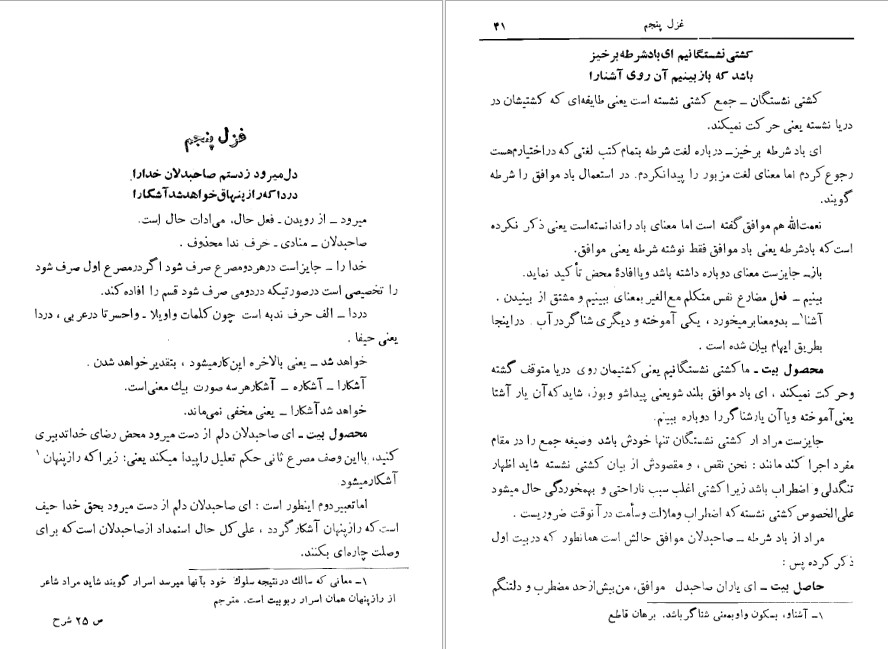 غزل پنجم
دل میرود زدستم صاحبدلان خدارا
دردا که راز پنهان خواهد شد آشکارا
میرود ــ از رویدن ـ فعل حال، می ادات حال است.
صاحبدلان ــ منادی ـ حرف ندا محذوف .
خدا را ــ جایز است در هر دو مصرع صرف شود اگر در مصرع اول صرف شود
را تخصیصی است در صورتیکه در دومی صرف شود قسم را افاده کند.
دردا ــ الف حرف ندبه است چون کلمات واویلا ـ واحسرتا در عربی ، دردا
یعنی حیفا .
خواهد شد ــ یعنی بالاخره این کار میشود ، بتقدیر خواهد شدن .
آشکارا ــ آشکاره ــ آشکار هر سه صورت بیك معنی است.
خواهد شد آشکارا ــ یعنی مخفی نمی‌ماند.
محصول بیت ـ ای صاحبدلان دلم از دست میرود محض رضای خدا تدبیری
کنید، با این وصف مصرع ثانی حکم تعلیل را پیدا میکند یعنی: زیرا که راز پنهان ۱
آشکار میشود
اما تعبیر دوم اینطور است : ای صاحبدلان دلم از دست میرود بحق خدا حیف
است که راز پنهان آشکار گردد ، علی کل حال استمداد از صاحبدلان است که برای
وصلت چاره‌ای بکنند.
۱ــ معانی که سالك در نتیجه سلوك خود بآنها میرسد اسرار گویند شاید مراد شاعر
از راز پنهان همان اسرار ربوبیت است. مترجم
ص ۲۵ شرح
غزل پنجم
۴۱
کشتی نشستگانیم ای باد شرطه برخیز
باشد که باز بینیم آن روی آشنا را
کشتی نشستگان ــ جمع کشتی نشسته است یعنی طایفه‌ای که کشتیشان در
دریا نشسته یعنی حرکت نمیکند.
ای باد شرطه برخیز ــ درباره لغت شرطه بتمام کتب لغتی که در اختیارم هست
رجوع کردم اما معنای لغت مزبور را پیدا نکردم. در استعمال باد موافق را شرطه
گویند.
نعمت‌الله هم موافق گفته است اما معنای باد را ندانسته‌است یعنی ذکر نکرده
است که باد شرطه یعنی باد موافق فقط نوشته شرطه یعنی موافق.
باز ــ جایز ست معنای دوباره داشته باشد و یا افادهٔ محض تأکید نماید.
بینیم ــ فعل مضارع نفس متکلم مع الغیر بمعنای ببینیم و مشتق از بینیدن .
آشنا۱ ــ بدو معنا بر میخورد ، یکی آموخته و دیگری شناگر در آب . در اینجا
بطریق ایهام بیان شده است .
محصول بیت ـ ما کشتی نشستگانیم یعنی کشتیمان روی دریا متوقف گشته
و حرکت نمیکند ، ای باد موافق بلند شو یعنی پیدا شو و بوز، شاید که آن یار آشنا
یعنی آموخته و یا آن یار شناگر را دوباره ببینم.
جایزست مراد از کشتی نشستگان تنها خودش باشد وصیغه جمع را در مقام
مفرد اجرا کند مانند : نحن نقص ، و مقصودش از بیان کشتی نشسته شاید اظهار
تنگدلی و اضطراب باشد زیرا کشتی اغلب سبب ناراحتی و بهمخوردگی حال میشود
علی الخصوص کشتی نشسته که اضطراب و ملالت و سأمت در آنوقت ضروریست .
مراد از باد شرطه ــ صاحبدلان موافق حالش است همانطور که در بیت اول
ذکر کرده پس :
حاصل بیت ـ ای یاران صاحبدل موافق، من بیش از حد مضطرب و دلتنگم
۱ــ آشناو، بسکون واو بمعنی شناگر باشد. برهان قاطع